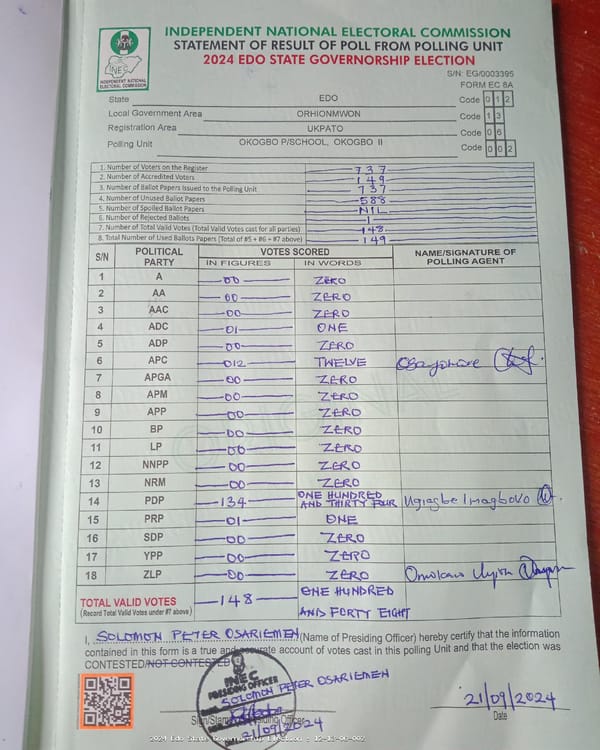 INDEPENDENT NATIONAL ELECTORAL COMMISSION
STATEMENT OF RESULT OF POLL FROM POLLING UNIT
2024 EDO STATE GOVERNORSHIP ELECTION
INEC
INDEPENDENT NATIONAL
ELECTORAL COMMISSION
S/N: EG/0003395
FORM EC 8A
State EDO Code 0 1 2
Local Government Area ORHIONMWON Code 1 3
Registration Area UKPATO Code 0 6
Polling Unit OKOGBO P/SCHOOL, OKOGBO II Code 0 0 2
1. Number of Voters on the Register 737
2. Number of Accredited Voters 149
3. Number of Ballot Papers Issued to the Polling Unit 737
4. Number of Unused Ballot Papers 588
5. Number of Spoiled Ballot Papers NIL
6. Number of Rejected Ballots 1
7. Number of Total Valid Votes (Total Valid Votes cast for all parties) 148
8. Total Number of Used Ballots Papers (Total of #5 + #6 + #7 above) 149
S/N POLITICAL PARTY VOTES SCORED NAME/SIGNATURE OF POLLING AGENT
IN FIGURES IN WORDS
1 A 00 ZERO
2 AA 00 ZERO
3 AAC 00 ZERO
4 ADC 01 ONE
5 ADP 00 ZERO
6 APC 012 TWELVE
7 APGA 00 ZERO
8 APM 00 ZERO
9 APP 00 ZERO
10 BP 00 ZERO
11 LP 00 ZERO
12 NNPP 00 ZERO
13 NRM 00 ZERO
14 PDP 134 ONE HUNDRED AND THIRTY FOUR
15 PRP 01 ONE
16 SDP 00 ZERO
17 YPP 00 ZERO
18 ZLP 00 ZERO
TOTAL VALID VOTES 148 ONE HUNDRED
(Record Total Valid Votes under #7 above) AND FORTY EIGHT
I, SOLOMON PETER OSARIEMEN (Name of Presiding Officer) hereby certify that the information
contained in this form is a true and accurate account of votes cast in this polling Unit and that the election was
CONTESTED/NOT CONTESTED
INEC
PRESIDING OFFICER
SOLOMON PETER OSARIEMEN
21/09/2024
21/09/2024
Date
2024 Edo State Governorship Election - 12-13-06-002